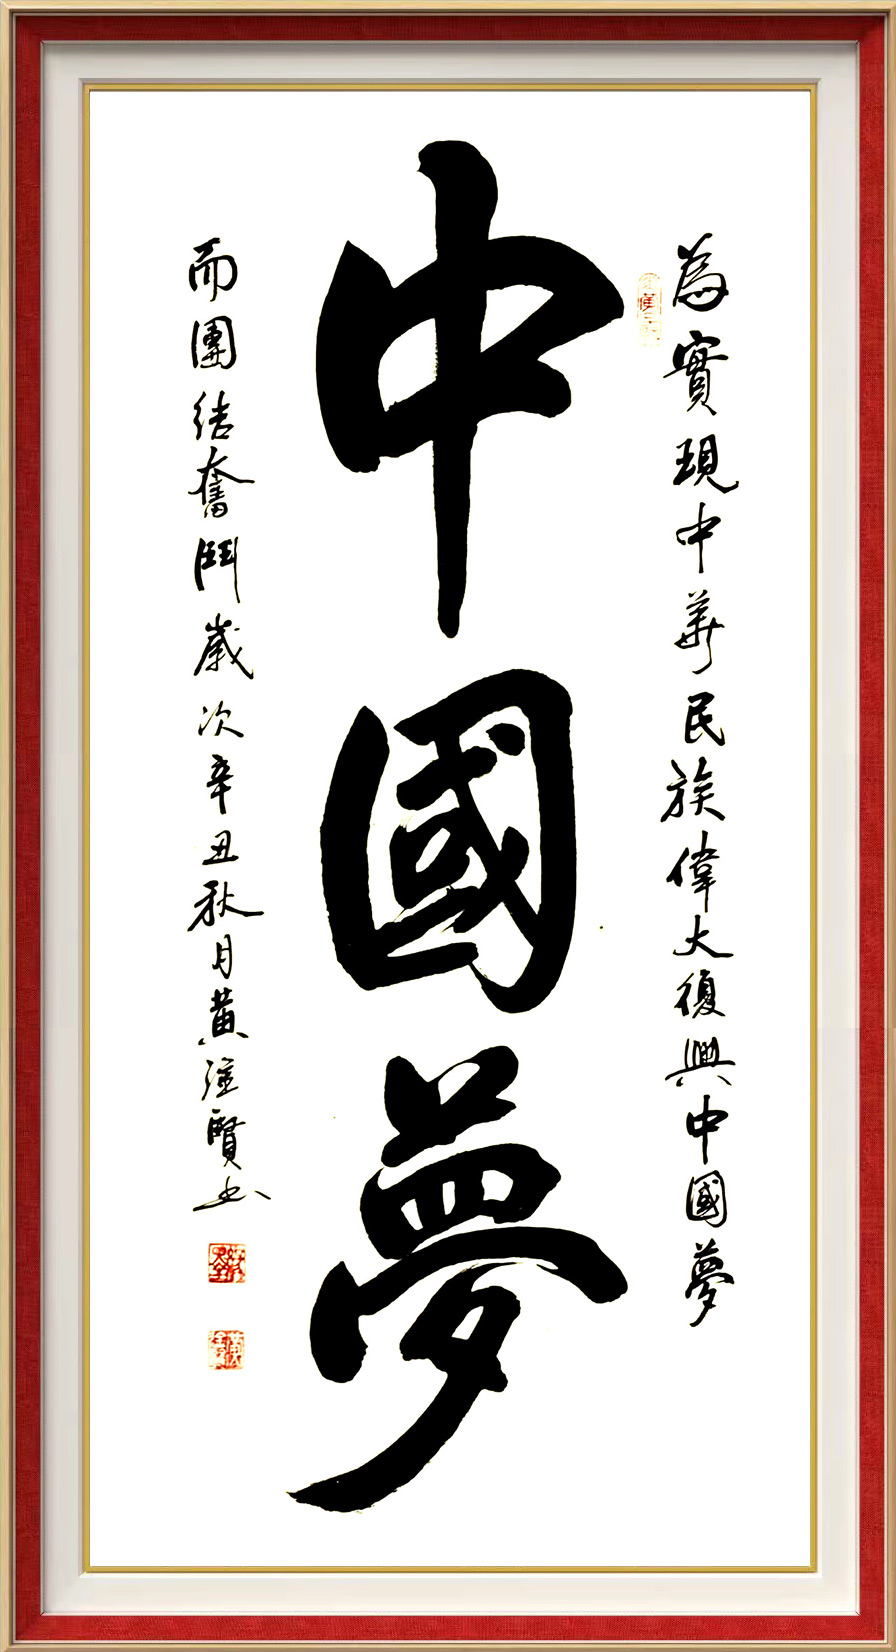 中國夢
為實現中華民族偉大復興中國夢
而團結奮鬥歲次辛丑秋月黃賢書